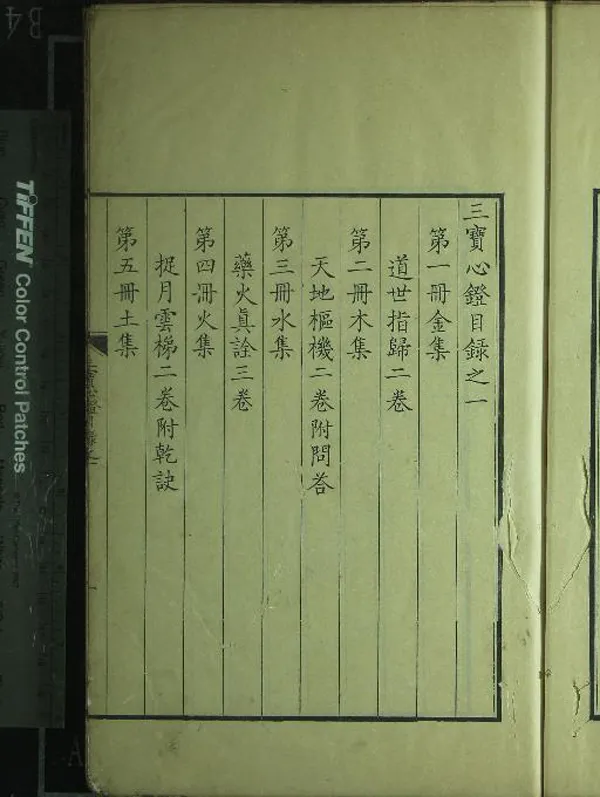 三寶心鐙目録之一
第一冊金集
道世指歸二卷
第二冊木集
天地樞機二卷附問答
第三冊水集
藥火眞詮三卷
第四冊火集
捉月雲梯二卷附乾訣
第五冊土集
TIFFEN Color Control Patches
B4
A